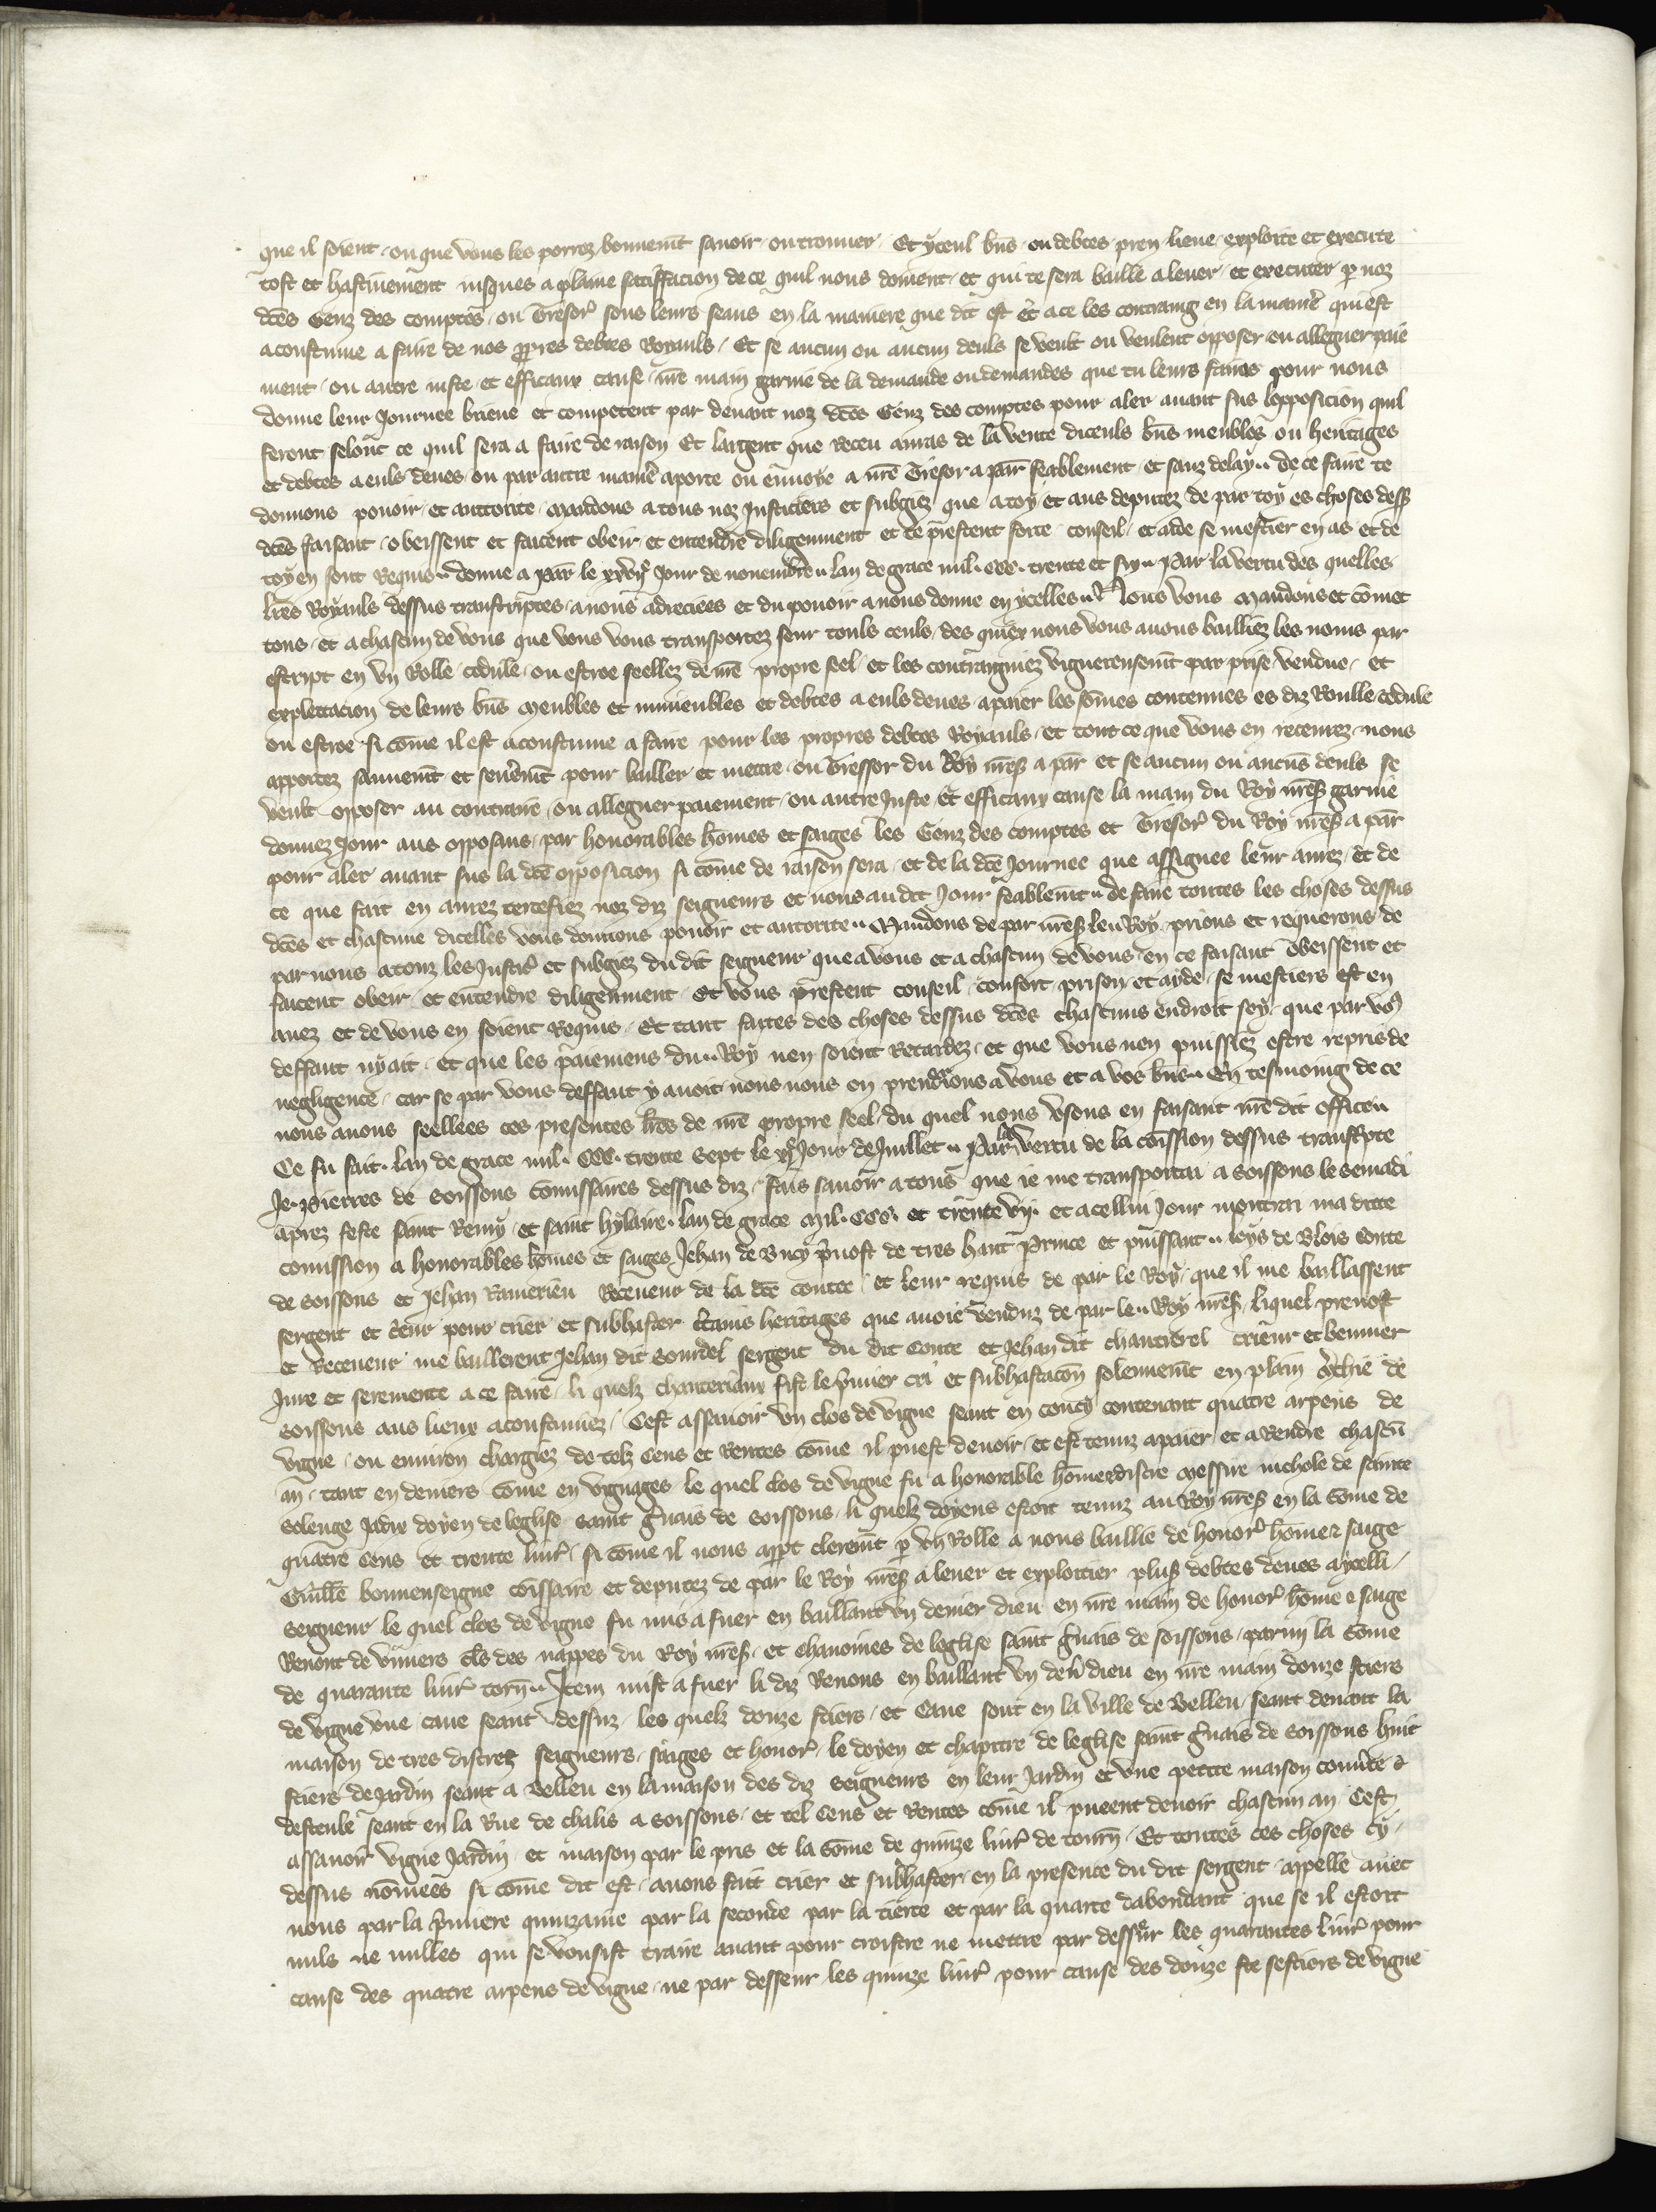 que il soient ou que vous les porrez bonnemt savoir ou trouver Et yceul bns ou debtes pren lieve exploite et execute
tost et hastivement iusques a plaine satisfacion de ce quil nous doivent et qui te sera baille a lever et executer p noz
dces Genz des comptes ou Tresor sous leurs seaus en la maniere que dit est Et a ce les contraing en la manie qui est
acoustume a faire de nos ppres debtes Royauls Et se aucun ou aucun deuls se veult ou veulent opposer ou alleguer paie
ment ou autre iuste et efficaux cause nre main garnie de la demande ou demandes que tu leurs fairas pour nous
donne leur Journee brieve et competent par devant noz dces Genz des comptes pour aler avant sus lopposicion quil
feront selont ce quil sera a faire de raison Et largent que receu auras de la vente diceuls bns meubles ou heritages
et debtes a euls deues ou par autre manie aporte ou envoye a nre Tresor a par feablement et sanz delay de ce faire te
donnons povoir et auttorite mandons a tous noz Justiciers et subgiez que a toy et aus deputez de par toy es choses dess
dces faisant obeissent et facent obeir et entendre diligemment et te prestent force conseil et aide se mestier en as et de
toy en sont Requis donne a par le xxvije Jour de novembre lan de grace mil ccc trente et six Par la vertu des quelles
lres Royauls dessus transcriptes a nous adreciees et du povoir a nous donne en ycelles Nous vous mandons et comet
tons et a chascun de vous que vous vous transportez seur touls ceuls des quiex nous vous avons bailliez les noms par
escript en un Rolle cedule ou escroe seellez de nre propre seel et les contraingniez viguereusemt par prise vendue et
explettacion de leurs bns meubles et inmeubles et debtes a euls deues a paier les somes contenues es diz Roulle cedule
ou escroe si come il est acoustume a faire pour les propres debtes Royauls et tout ce que vous en recevrez nous
apportez sauvemt et seuremt pour bailler et mettre ou Tressor du Roy nres a par et se aucun ou aucuns deuls se
veult opposer au contraire ou alleguer paiement ou autre Juste et efficaux cause la main du Roy nres garnie
donnez Jour aus opposans par honorables homes et saiges les Genz des comptes et Tresor du Roy nres a par
pour aler avant sus la dce opposicion si come de raison sera et de la dce Journee que assignee leur aurez et de
ce que fait en aurez certefiez noz diz seigneurs et nous au dit Jour feablemt de faire toutes les choses dessus
dces et chascune dicelles vous donnons povoir et autorite Mandons de par nres le Roy prions et requerons de
par nous a touz les Justic et subgiez du dit seigneur que a vous et a chascun de vous en ce faisant obeissent et
facent obeir et entendre diligemment Et vous prestent conseil confort prison et ayde se mestiers est en
avez et de vous en soient Requis Et tant faites des choses dessus dces chascuns endroit soy que par vos
deffaut ny ait et que les paiemens du Roy nen soient Retardez et que vous nen puissiez estre repris de
negligence car se par vous deffaut y avoit nous nous en prendrions a vous et a vos bns En tesmoing de ce
nous avons seellees ces presentes lres de nre propre seel du quel nous usons en faisant nre dit office
Ce fu fait lan de grace mil ccc trente sept le Jour de Juillet Par la vertu de la comission dessus transcpte
Je Pierres de Soissons comissaires dessus diz fais savoir a tous que ie me transportai a Soissons le semadi
aprez feste saint Remy et saint hylaire lan de grace mil ccc et trente vij et a cellui Jour montrai ma dicte
comission a honorables homes et saiges Jehan de Bucy pvost de tres haut Prince et puissant loys de Blois Conte
de Soissons et Jehan Receveur de la dce contee et leur requis de par le Roy que il me baillassent
sergent et crieur pour crier et subhaster certains heritages que avoie venduz de par le Roy nres liquel prevost
et Receveur me baillerent Jehan dit Sourdel sergent du dit Conte et Jehan dit chanterel crieur et bennier
Jure et seremente a ce faire li quelz chanteriaux fist le pmier cri et subhastacon solennemt en plain marchie de
Soissons aus lieux acoustumez Cest assavoir un clos de vigne seant en coucy contenant quatre arpens de
vigne ou environ chargiez de telz Cens et Rentes come il puest devoir et est tenuz a paier et a Rendre chascun
an tant en deniers come en vignages le quel clos de vigne fu a honorable home discre messire nichole de sainte
solenge Jadis doyen de leglise saint gvais de Soissons li quelz doyens estoit tenuz au Roy nres en la some de
quatre Cens et trente livr si come il nous appt cleremt p un Rolle a nous baillie de honor home et saige
Guille bonnenseigne comissaire et deputez de par le Roy nres a lever et exploitier plus debtes deues a ycelli
seigneur le quel clos de vigne fu mis a fuer en baillant un denier dieu en nre main de honor home et saige
Renout de viviers cls des nappes du Roy nres et chanoines de leglise saint gvais de Soissons parmi la some
de quarante livr torn Item mist a fuer li diz Renous en baillant un den dieu en nre main douze stiers
de vigne une cave seant dessuz les quelz douze stiers et Cave sont en la ville de Belleu seant devant la
maison de tres discrez seigneurs saiges et honor le doyen et chapitre de leglise saint gvais de Soissons huit
stiers de Jardin seant a Belleu en la maison des diz seigneurs en leur Jardin et une petite maison couvte
desteule seant en la Rue de chalis a Soissons et tel Cens et Rentes come il pueent devoir chascun an Cest
assavoir vigne Jardin et maison par le pris et la some de quinze livr de tourn Et toutes ces choses cy
dessus nomees si come dit est avons fait crier et subhaster en la presence du dit sergent appelle avec
nous par la pmiere quinzaine par la seconde par la tierce et par la quarte dabondant que se il estoit
nuls ne nulles qui se vousist traire avant pour croistre ne mettre par desseur les quarantes livr pour
cause des quatre arpens de vigne ne par desseur les quinze livr pour cause des douze ste sestiers de vigne